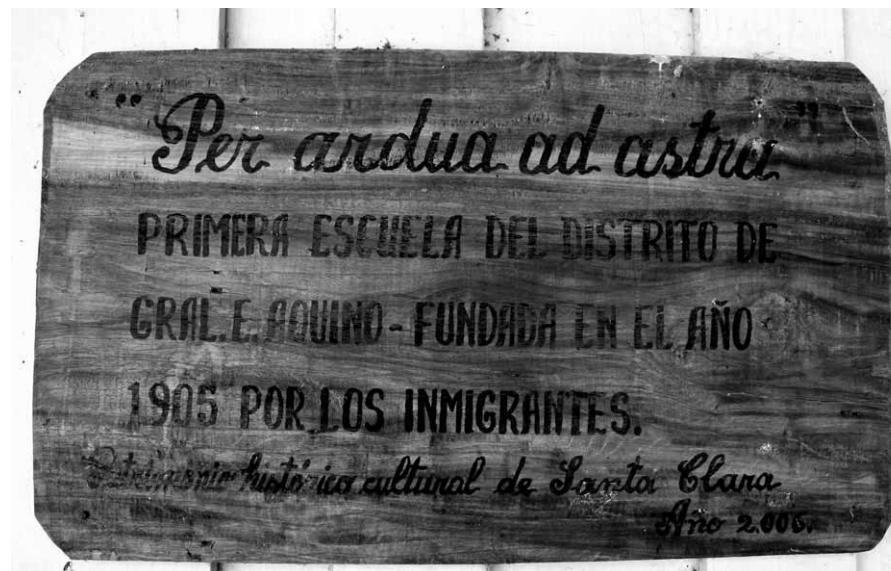 "Per ardua ad astra"
PRIMERA ESCUELA DEL DISTRITO DE
GRAL. E. AQUINO - FUNDADA EN EL AÑO
1905 POR LOS INMIGRANTES.
Patrimonio histórico cultural de Santa Clara
Año 2.005.